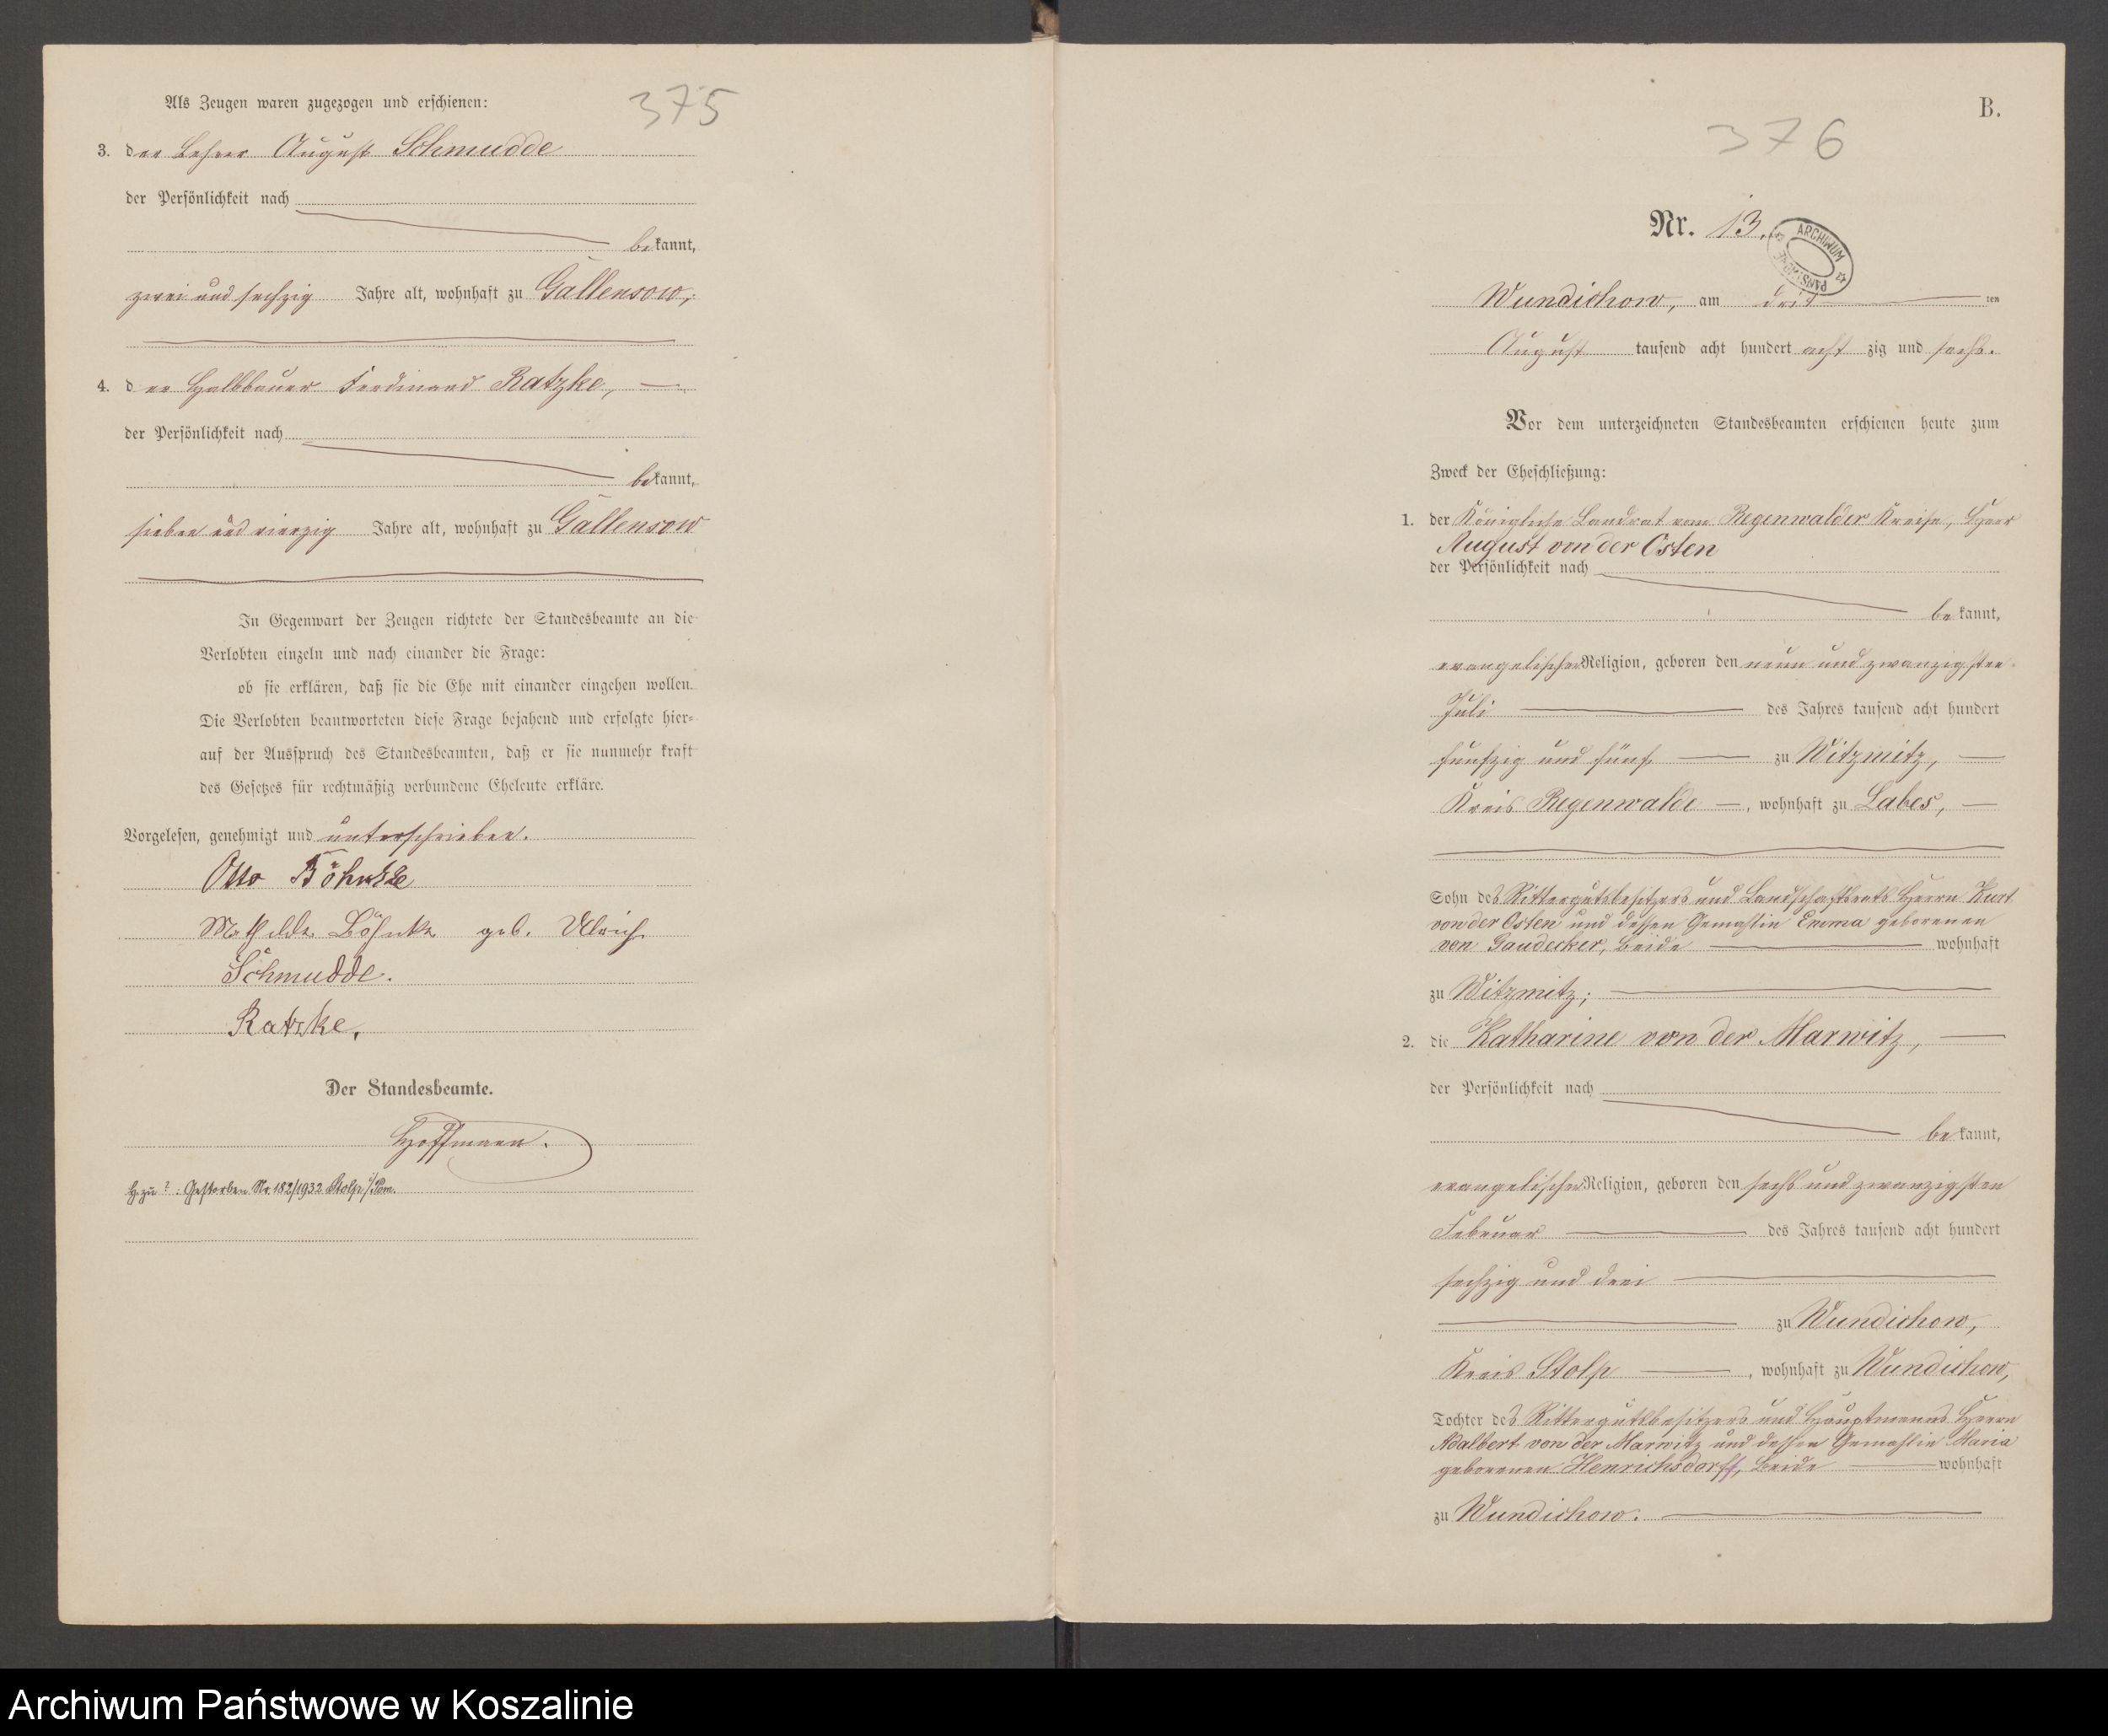 375
Als Zeugen waren zugezogen und erschienen:
3. der Lehrer August Schmudde
der Persönlichkeit nach
bekannt,
zwei und sechzig Jahre alt, wohnhaft zu Gallensow,
4. der Halbbauer Ferdinand Ratzke,
der Persönlichkeit nach
bekannt,
sieben und vierzig Jahre alt, wohnhaft zu Gallensow
In Gegenwart der Zeugen richtete der Standesbeamte an die
Verlobten einzeln und nach einander die Frage:
ob sie erklären, daß sie die Ehe mit einander eingehen wollen.
Die Verlobten beantworteten diese Frage bejahend und erfolgte hier-
auf der Ausspruch des Standesbeamten, daß er sie nunmehr kraft
des Gesetzes für rechtmäßig verbundene Eheleute erkläre.
Vorgelesen, genehmigt und unterschrieben.
Otto Böhnke
Mathilde Böhnke geb. Ulrich
Schmudde.
Ratzke.
Der Standesbeamte.
Hoffmann.
H. zu ? : Gestorben Nr. 182/1932 Stolp i/Pom.
B.
376
Nr. 13.
ARCHIWUM PAŃSTWOWE
Wundichow, am drit ten
August tausend acht hundert acht zig und sechs.
Vor dem unterzeichneten Standesbeamten erschienen heute zum
Zweck der Eheschließung:
1. der Königliche Landrat vom Regenwalder Kreise, Herr
August von der Osten
der Persönlichkeit nach
bekannt,
evangelischer Religion, geboren den neun und zwanzigsten
Juli des Jahres tausend acht hundert
funfzig und fünf zu Witzmitz,
Kreis Regenwalde, wohnhaft zu Labes,
Sohn des Rittergutsbesitzers und Landschaftsrats Herrn Kurt
von der Osten und dessen Gemahlin Emma geborenen
von Gaudecker, beide wohnhaft
zu Witzmitz;
2. die Katharine von der Marwitz,
der Persönlichkeit nach
bekannt,
evangelischer Religion, geboren den sechs und zwanzigsten
Februar des Jahres tausend acht hundert
sechzig und drei
zu Wundichow,
Kreis Stolp, wohnhaft zu Wundichow,
Tochter des Rittergutsbesitzers und Hauptmanns Herrn
Adalbert von der Marwitz und dessen Gemahlin Maria
geborenen Henrichsdorff, beide wohnhaft
zu Wundichow.
Archiwum Państwowe w Koszalinie